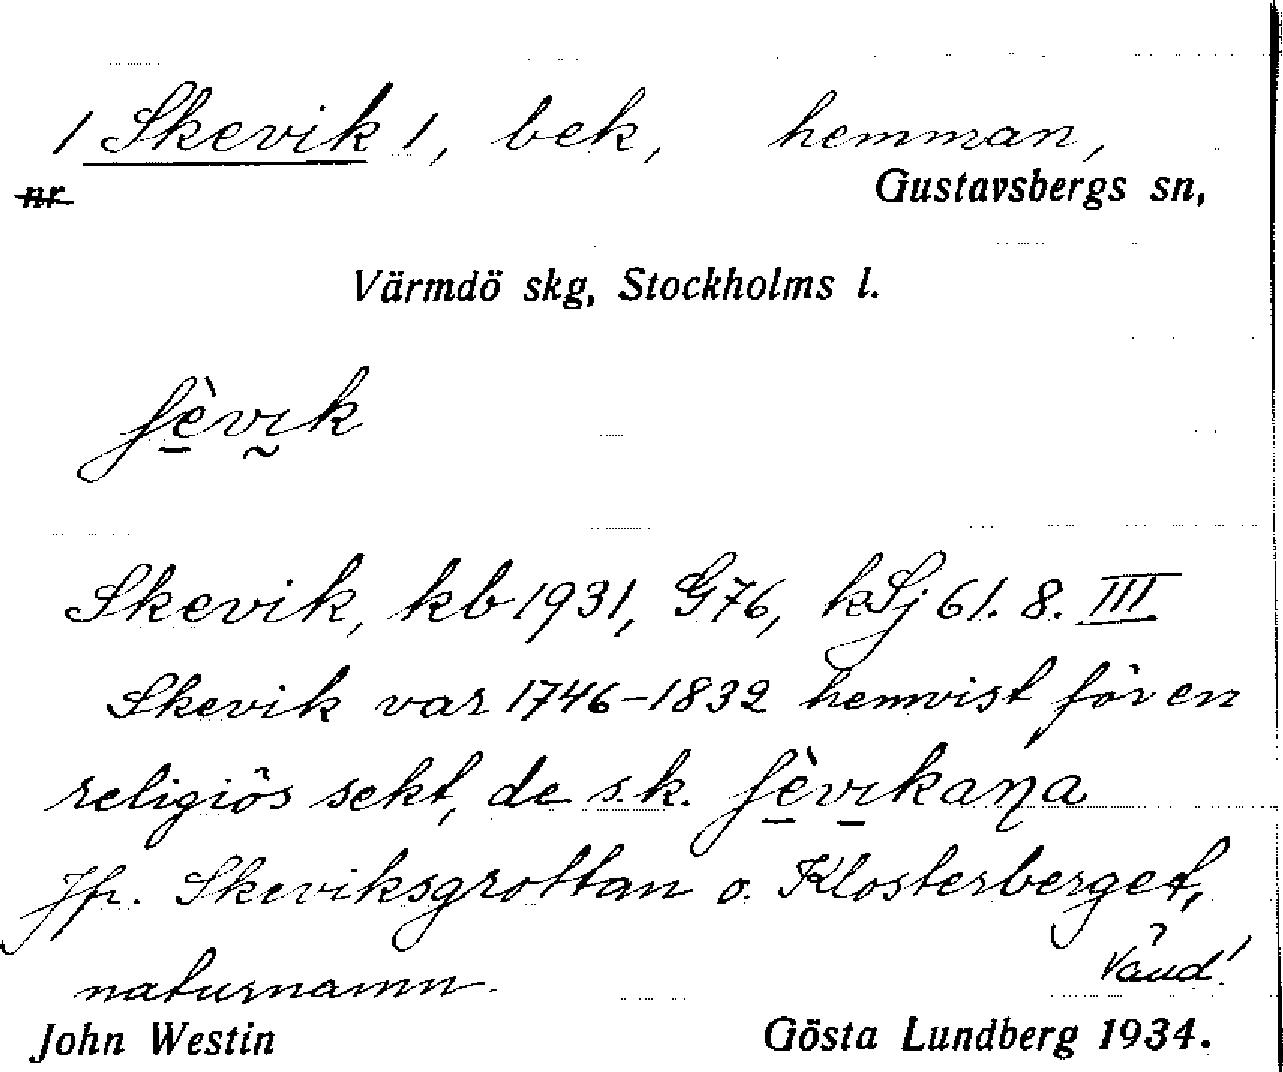 / Skevik /, bek, hemman,
nr Gustavsbergs sn,
Värmdö skg, Stockholms l.
ʃèvik
Skevik, kb 1931, G76, kSj 61. 8. III
Skevik var 1746-1832 hemvist för en
religiös sekt, de s.k. ʃèvikaƞa
Jfr. Skeviksgrottan o. Klosterberget,
naturnamn. Vänd!
John Westin Gösta Lundberg 1934.